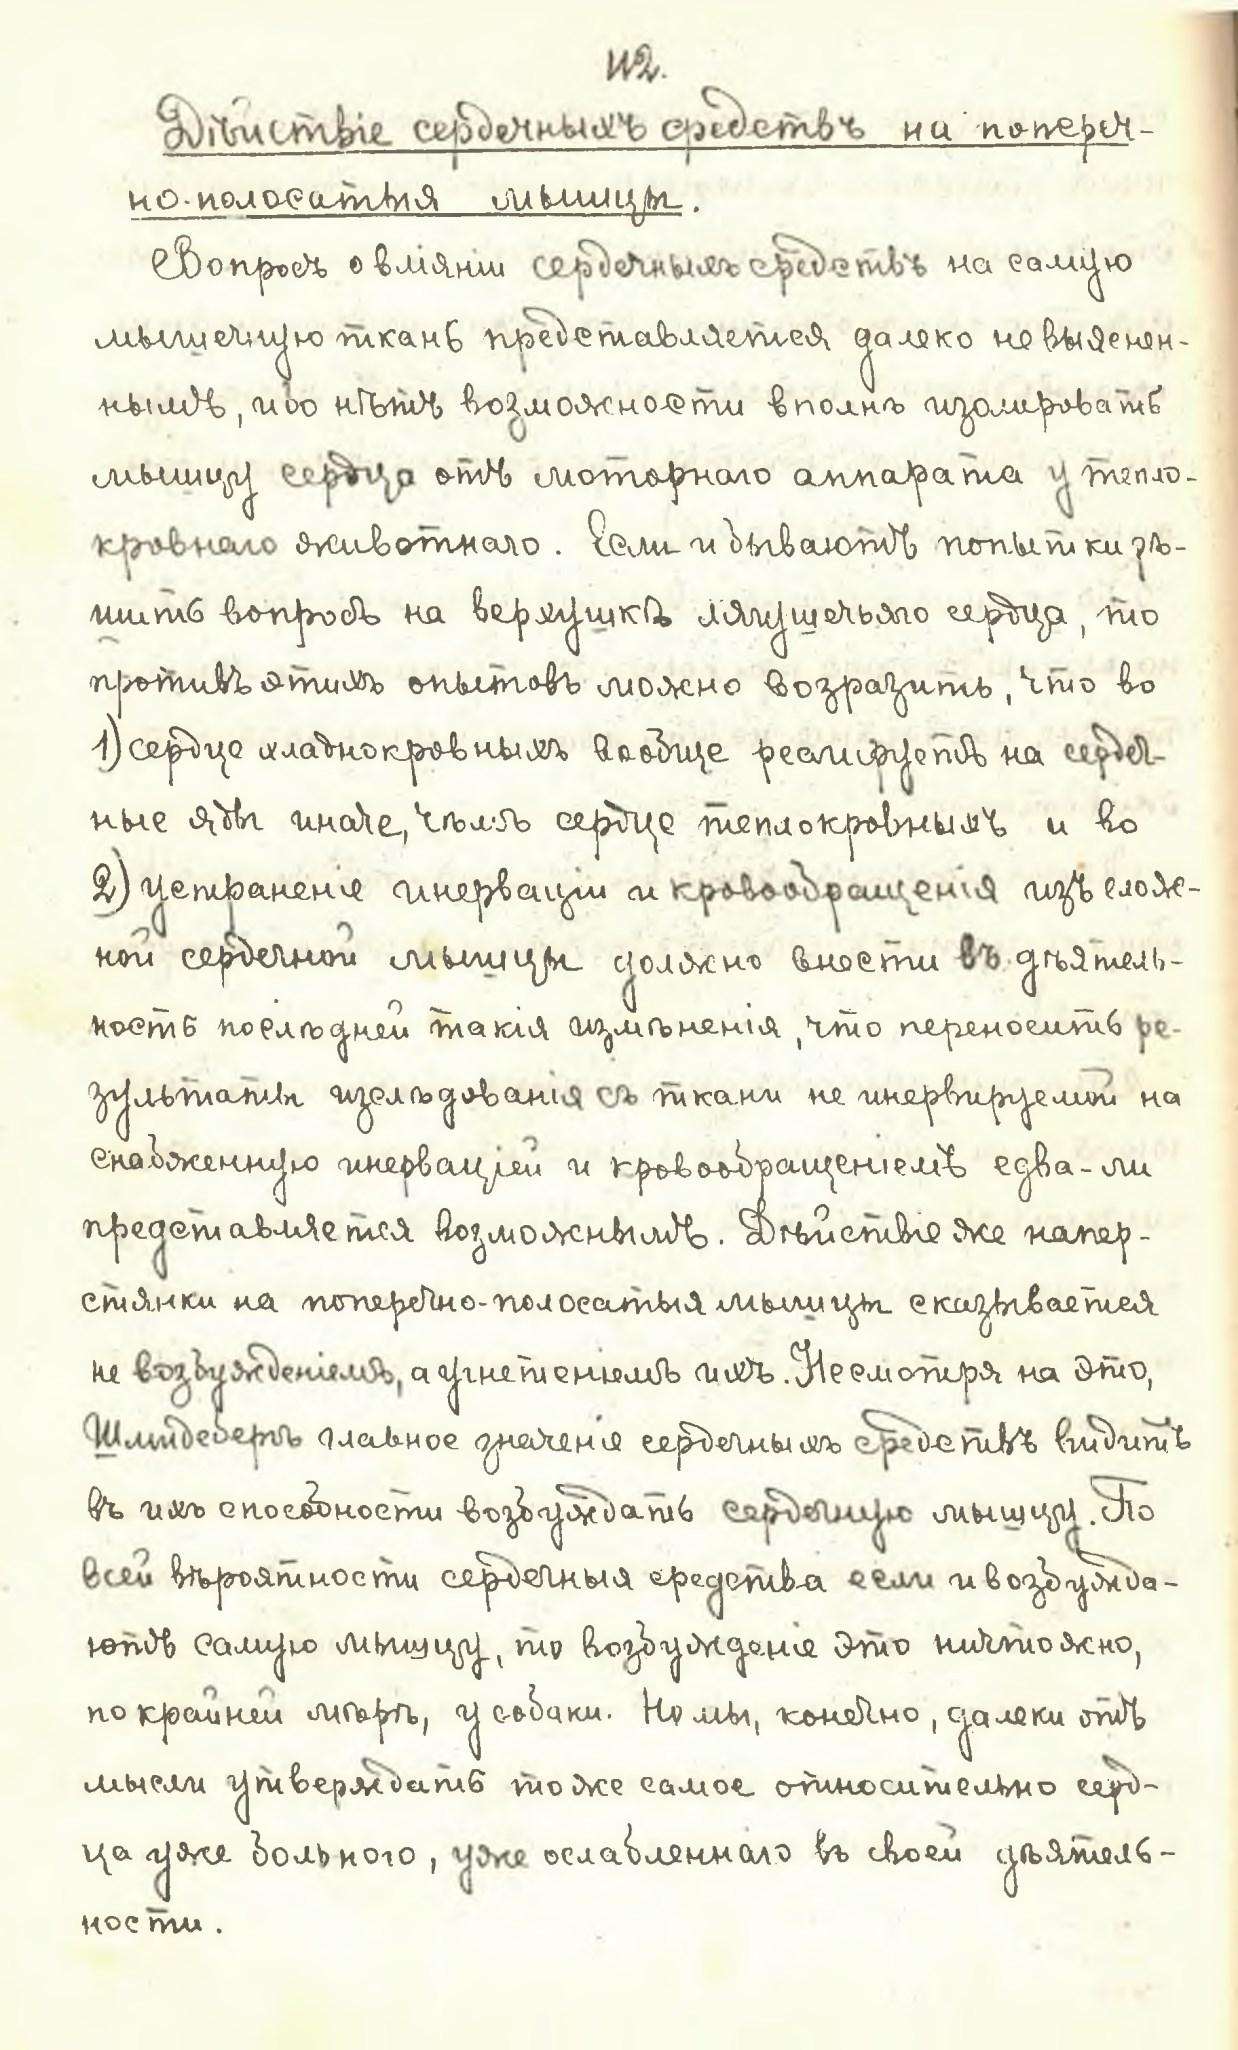 112.
Дѣйствіе сердечныхъ средствъ на попереч-
но-полосатыя мышцы.
Вопросъ о вліяніи сердечныхъ средствъ на самую
мышечную ткань представляется далеко не выяснен-
нымъ, ибо нѣтъ возможности вполнѣ изолировать
мышцу сердца отъ моторнаго аппарата у тепло-
кровнаго животнаго. Если и бываютъ попытки рѣ-
шить вопросъ на верхушкѣ лягушечьяго сердца, то
противъ этихъ опытовъ можно возразить, что во
1) сердце хладнокровныхъ вообще реагируетъ на сердеч-
ные яды иначе, чѣмъ сердце теплокровныхъ и во
2) устраненіе инерваціи и кровообращенія изъ слож-
ной сердечной мышцы должно внести въ дѣятель-
ность послѣдней такія измѣненія, что переносить ре-
зультаты изслѣдованія съ ткани не инервируемой на
снабженную инерваціей и кровообращеніемъ едва-ли
представляется возможнымъ. Дѣйствіе же напер-
стянки на поперечно-полосатыя мышцы сказывается
не возбужденіемъ, а угнетеніемъ ихъ. Несмотря на это,
Шмидебергъ главное значеніе сердечныхъ средствъ видитъ
въ ихъ способности возбуждать сердечную мышцу. По
всей вѣроятности сердечныя средства если и возбужда-
ютъ самую мышцу, то возбужденіе это ничтожно,
по крайней мѣрѣ, у собаки. Но мы, конечно, далеки отъ
мысли утверждать тоже самое относительно серд-
ца уже больного, уже ослабленнаго въ своей дѣятель-
ности.